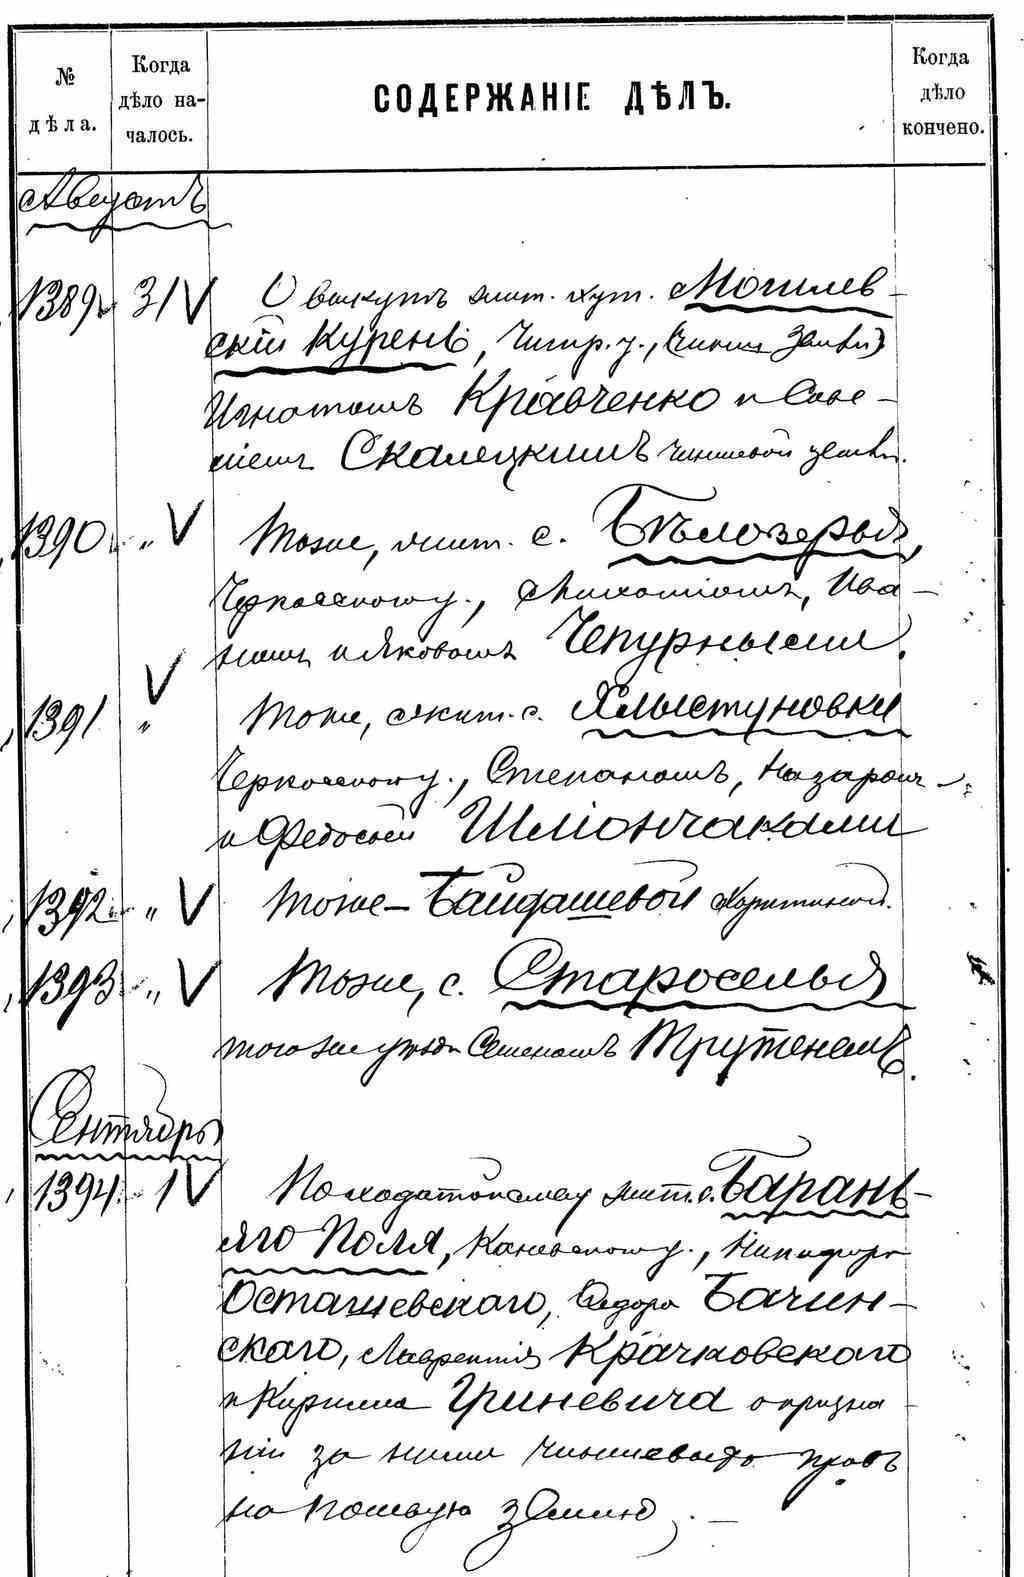 № дѣла.
Когда дѣло на-
чалось.
СОДЕРЖАНІЕ ДѢЛЪ.
Когда дѣло кончено.
Августъ
1389 31 V О выкупѣ жит. хут. Могилев-
скій Курень, Чигир. у.,
Игнатомъ Кравченко и Саве-
ліемъ Скалецкимъ чиншевой земли.
1390 " V Тоже, жит. с. Бѣлозерья,
Черкасскаго у., Ива-
номъ и Яковомъ Чепурными.
1391 " V Тоже, жит. с. Хлыстуновки
Черкасскаго у., Степаномъ, Назаромъ
и Федосіей Шліончаками
1392 " V Тоже – Байдашевой Харитиной.
1393 " V Тоже, с. Староселья
того же уѣзда Семеномъ Трутенемъ.
Сентябрь
1394 1 V По ходатайству жит. с. Барань-
яго Поля, Каневскаго у., Никифора
Осташевскаго, Федора Бачин-
скаго, Лаврентія Крачковскаго
и Кирилла Гриневича о призна
ніи за ними чиншеваго правъ
на землю